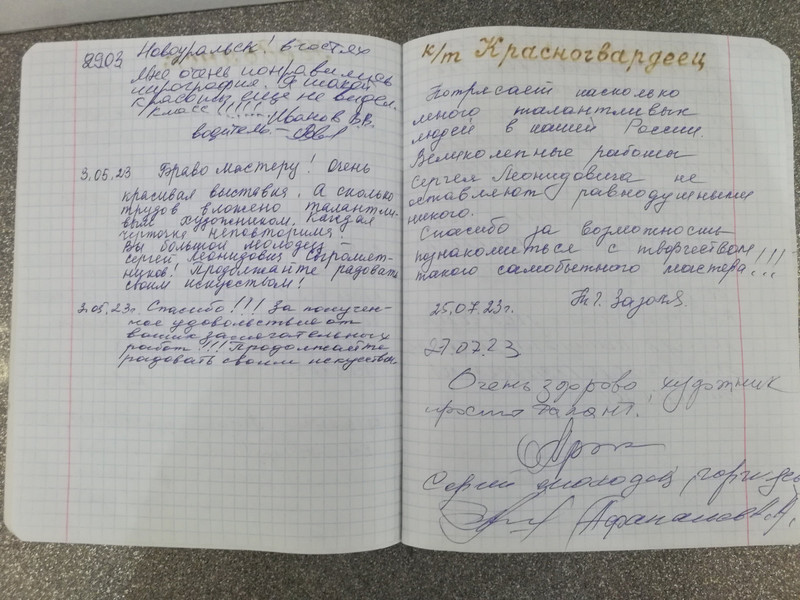 Новоуральск! в гостях
Мне очень понравилась
пирография. Я такой
красоты еще не видел.
Класс!!!!!
Иванов В.В.
водитель –
3.05.23 Браво Мастеру! Очень
красивая выставка. А сколько
трудов вложено талантли-
вым художником. Каждая
черточка неповторима.
Вы большой молодец –
Сергей Леонидович
ников! Продолжайте радовать
своим искусством!
3.05.23г. Спасибо!!! За получен-
ное удовольствие от
ваших замечательных
работ!!! Продолжайте
радовать своим искусством
к/т Красногвардеец
Потрясает насколько
много талантливых
людей в нашей России.
Великолепные работы
Сергея Леонидовича не
оставляют равнодушными
никого.
Спасибо за возможность
познакомиться с творчеством
такого самобытного мастера!!!
25.07.23г.
27.07.23
Очень здорово, художник
просто талант!
Сергей молодец,